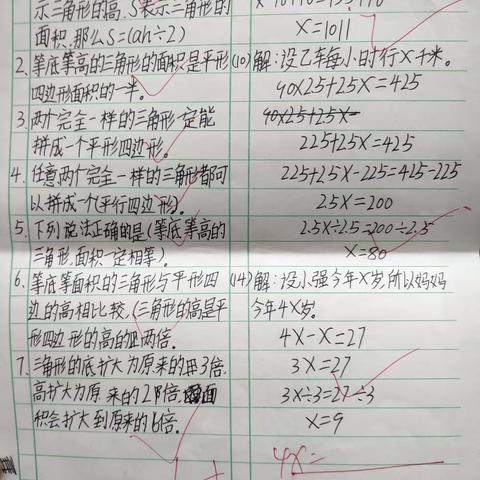 示三角形的高,S表示三角形的
面积,那么S=(ah÷2)
2.等底等高的三角形的面积是平形
四边形面积的一半。
3.两个完全一样的三角形一定能
拼成一个平形四边形。
4.任意两个完全一样的三角形都可
以拼成一个(平行四边形)。
5.下列说法正确的是(等底等高的
三角形,面积一定相等)。
6.等底等面积的三角形与平形四
边的高相比较,(三角形的高是平
形四边形的高的两倍。
7.三角形的底扩大为原来的3倍,
高扩大为原来的2倍,面
积会扩大到原来的6倍。
X=1011
(10)解:设乙车每小时行X千米。
90X25+25X=425
90X25+25X
225+25X=425
225+25X-225=425-225
2.5X=200
2.5X÷2.5=200÷2.5
X=80
(14)解:设小强今年X岁,所以妈妈
今年4X岁。
4X-X=27
3X=27
3X÷3=27÷3
X=9
4X=